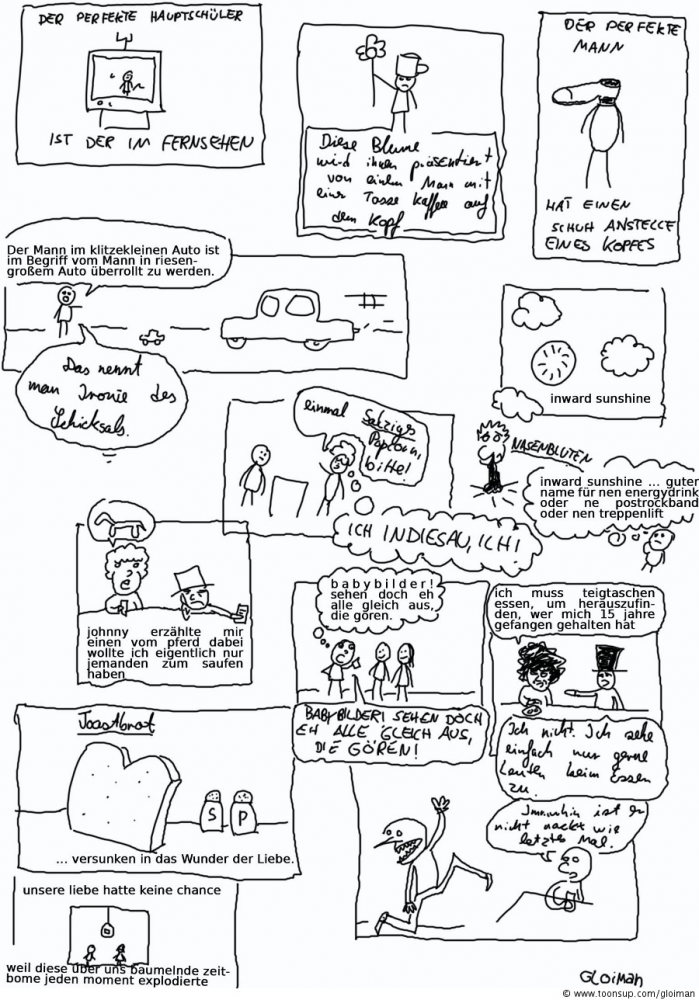 DER PERFEKTE HAUPTSCHÜLER
IST DER IM FERNSEHEN
Diese Blume
wird ihnen präsentiert
von einem Mann mit
einer Tasse Kaffee auf
dem Kopf
DER PERFEKTE
MANN
HAT EINEN
SCHUH ANSTELLE
EINES KOPFES
Der Mann im klitzekleinen Auto ist
im Begriff vom Mann in riesen-
großem Auto überrollt zu werden.
Das nennt
man Ironie des
Schicksals.
inward sunshine
einmal Salziges
Popcorn,
bitte!
ICH INDIESAU, ICH!
NASENBLUTEN
inward sunshine ... guter
name für nen energydrink
oder ne postrockband
oder nen treppenlift
johnny erzählte mir
einen vom pferd dabei
wollte ich eigentlich nur
jemanden zum saufen
haben
babybilder!
sehen doch eh
alle gleich aus,
die gören.
BABYBILDER! SEHEN DOCH
EH ALLE GLEICH AUS,
DIE GÖREN!
ich muss teigtaschen
essen, um herauszufin-
den, wer mich 15 jahre
gefangen gehalten hat
Ich nicht. Ich sehe
einfach nur gerne
Leuten beim Essen
zu.
Toastbrot
S P
... versunken in das Wunder der Liebe.
Immerhin ist er
nicht nackt wie
letztes Mal.
unsere liebe hatte keine chance
weil diese über uns baumelnde zeit-
bome jeden moment explodierte
GLOIMAN
© www.toonsup.com/gloiman